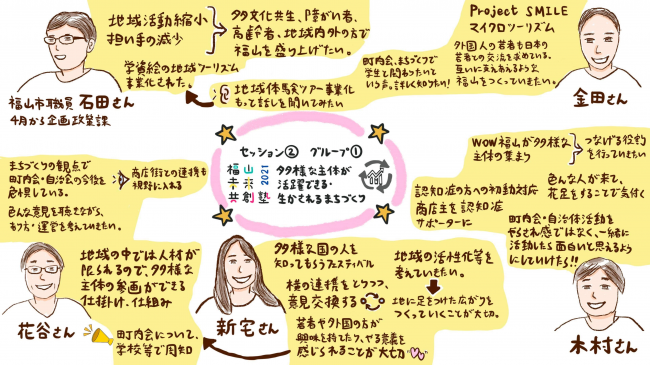 地域活動縮小
担い手の減少
多文化共生、障がい者、
高齢者、地域内外の方で
福山を盛り上げたい。
学資絵の地域ツーリズム
事業化された。
地域体験ツアー事業化
もって話しを聞いてみたい
福山市職員 石田さん
4月から企画政策課
Project SMILE
マイクロツーリズム
外国人の若者も日本の
若者との交流を求めている。
互いに支えあえるような
福山をつくっていきたい。
町内会、まちづくりで
学生と関わりたいと
いう声。詳しく知りたい!
金田さん
セッション② グループ①
福山
未来
共創塾
2021
多様な主体が
活躍できる・
生かされるまちづくり
まちづくりの観点で
町内会・自治会の今後を
危惧している。
商店街との連携も
視野に入れる
色んな意見を聴きながら、
あり方・運営を考えていきたい。
地域の中では人材が
限られるので、多様な
主体の参画ができる
仕掛け・仕組み
花谷さん
町内会について、
学校等で周知
多様な国の人を
知ってもらうフェスティバル
横の連携をとりつつ、
意見交換する
若者や外国の方が
興味を持てたり、やる意義を
感じられることが大切
新宅さん
地域の活性化等を
考えていきたい。
地に足をつけた広がりを
つくっていくことが大切。
WOW福山が多様な
主体の集まり
つなげる役割
を行っていきたい
認知症の方への初動対応
商店主を認知症
サポーターに
色んな人が来て、
花足をすることで気付く
町内会・自治体活動を
やらされ感ではなく、一緒に
活動したら面白いと思えるよう
にしていけたら!!
木村さん